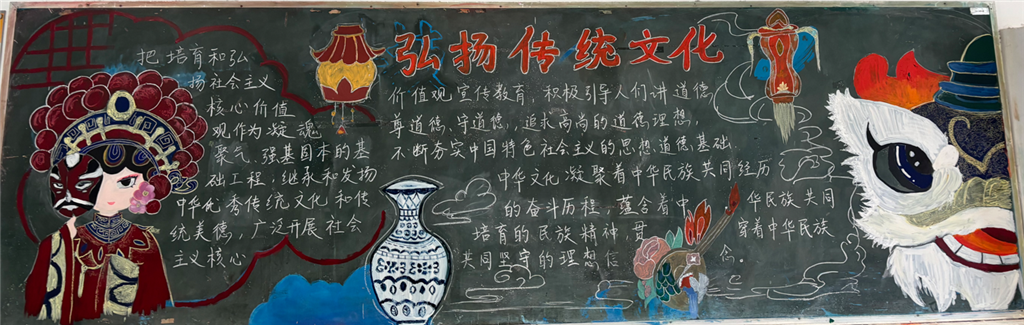 弘扬传统文化
把培育和弘
扬社会主义
核心价值
观作为凝魂
聚气、强基固本的基
础工程，继承和发扬
中华优秀传统文化和传
统美德，广泛开展社会
主义核心
价值观宣传教育，积极引导人们讲道德，
尊道德、守道德，追求高尚的道德理想，
不断夯实中国特色社会主义的思想道德基础。
中华文化凝聚着中华民族共同经历
的奋斗历程，蕴含着中 华民族共同
培育的民族精神，贯 穿着中华民族
共同坚守的理想信 念。